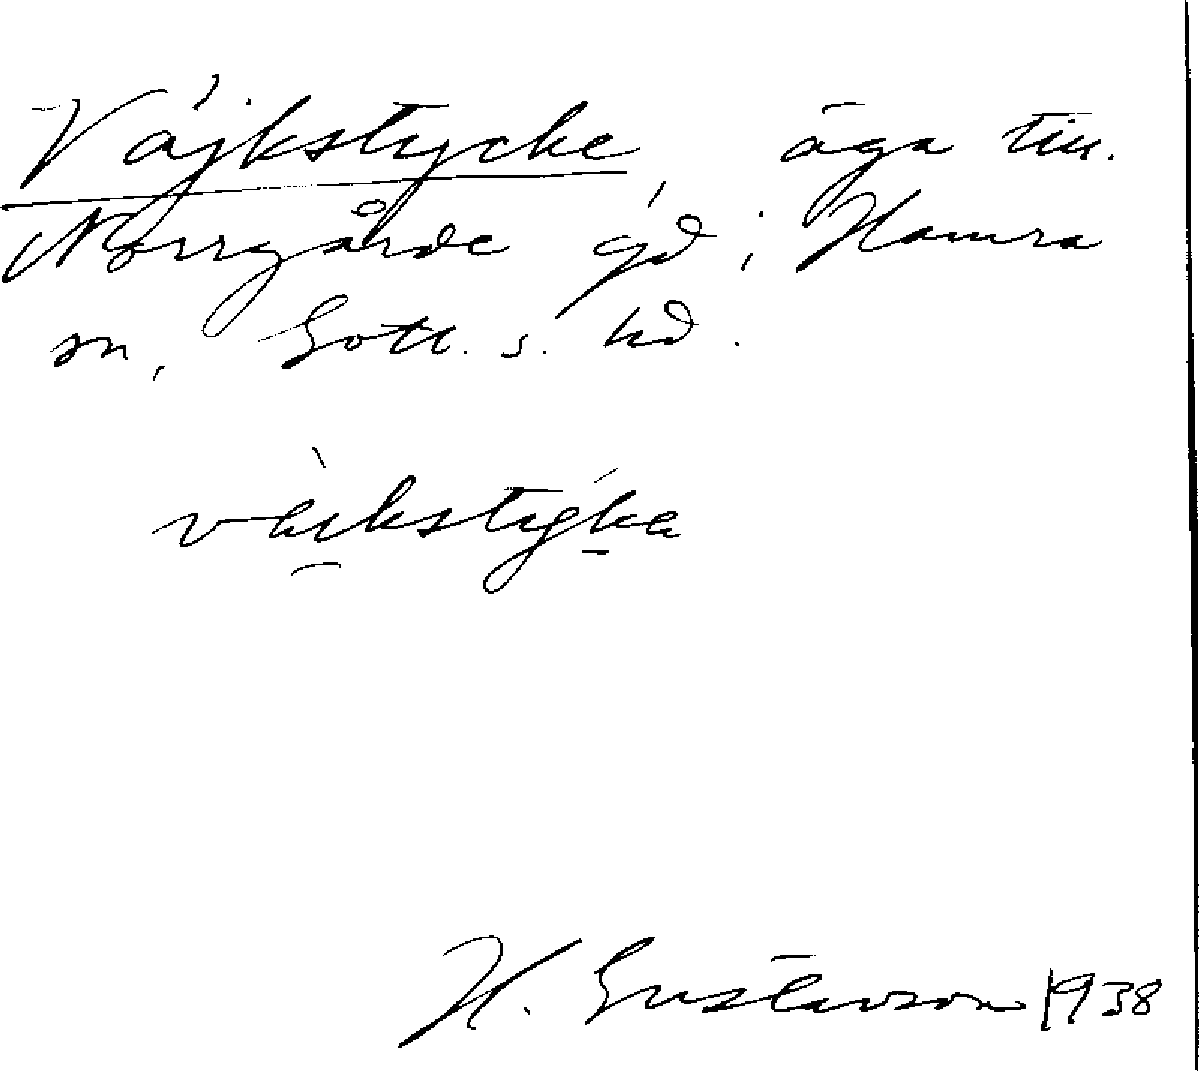 Vájkstycke, äga till.
Norrgårde gd i Hamra
sn, Gotl. s. hd.
vàikstýka
H. Gustavson 1938